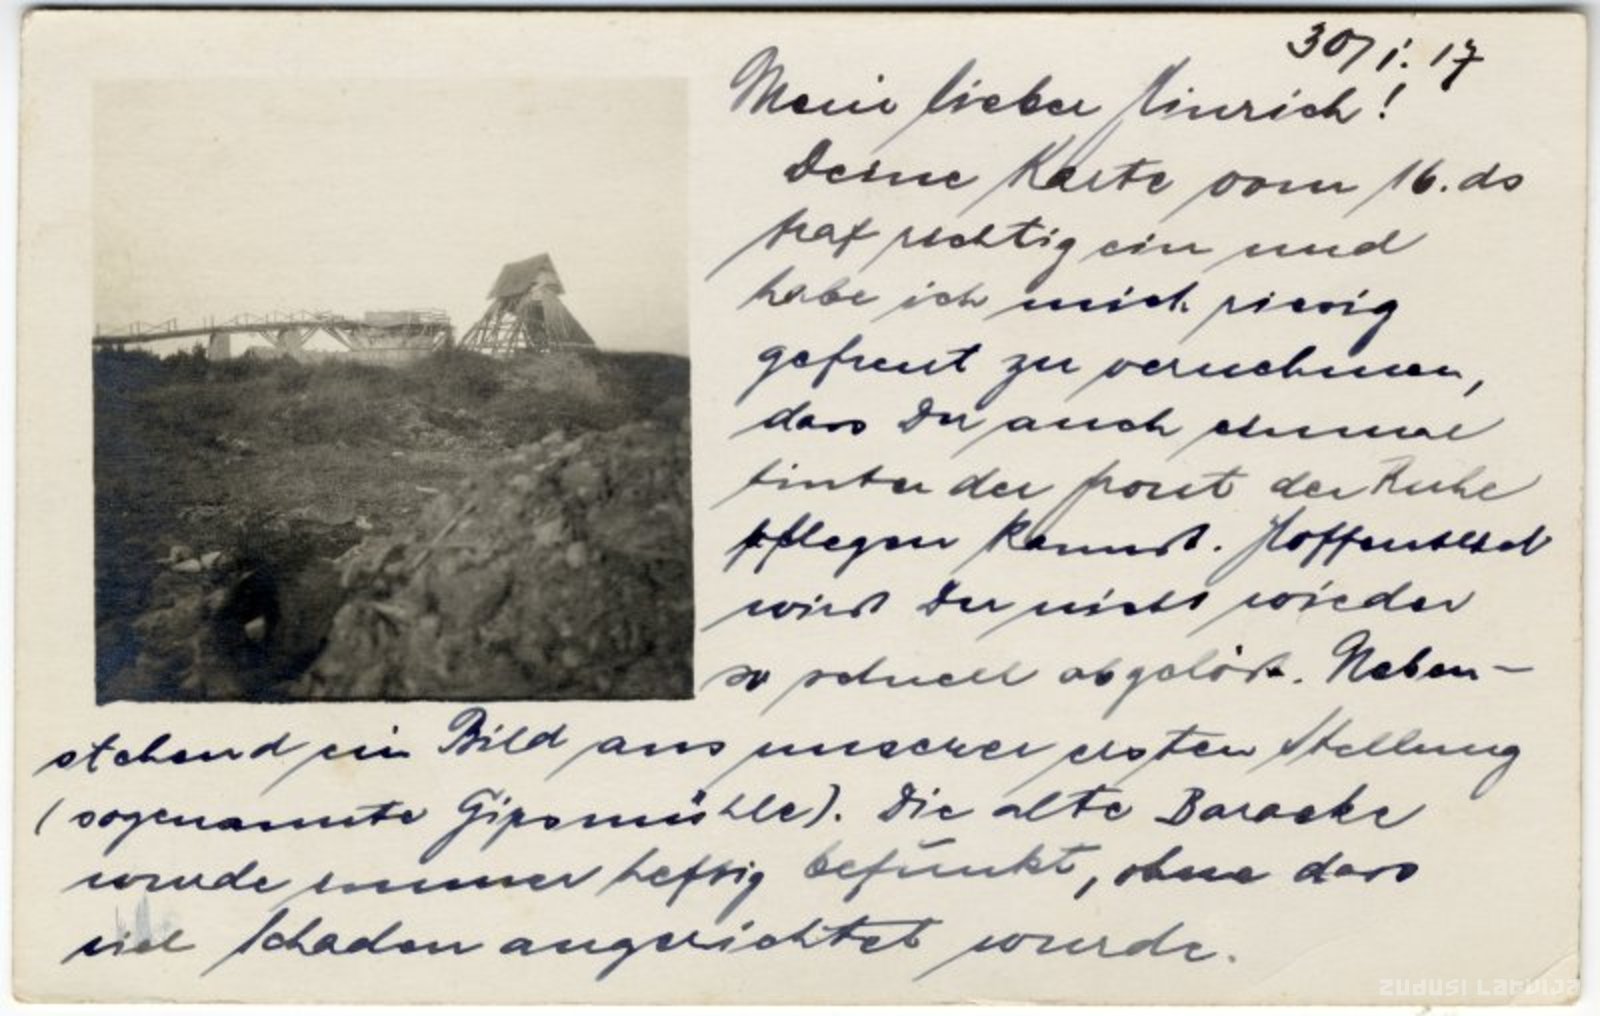 30/1. 17
Mein lieber Hinrich!
Deine Karte vom 16. ds
traf richtig ein und
habe ich mich riesig
gefreut zu vernehmen,
dass Du auch einmal
hinter der Front der Ruhe
pflegen kannst. Hoffentlich
wirst Du nicht wieder
so schnell abgelöst. Neben-
stehend ein Bild aus unserer ersten Stellung
(sogenannte Gipsmühle). Die alte Baracke
wurde immer heftig befunkt, ohne dass
viel Schaden angerichtet wurde.
ZUDUSI LATVIJA